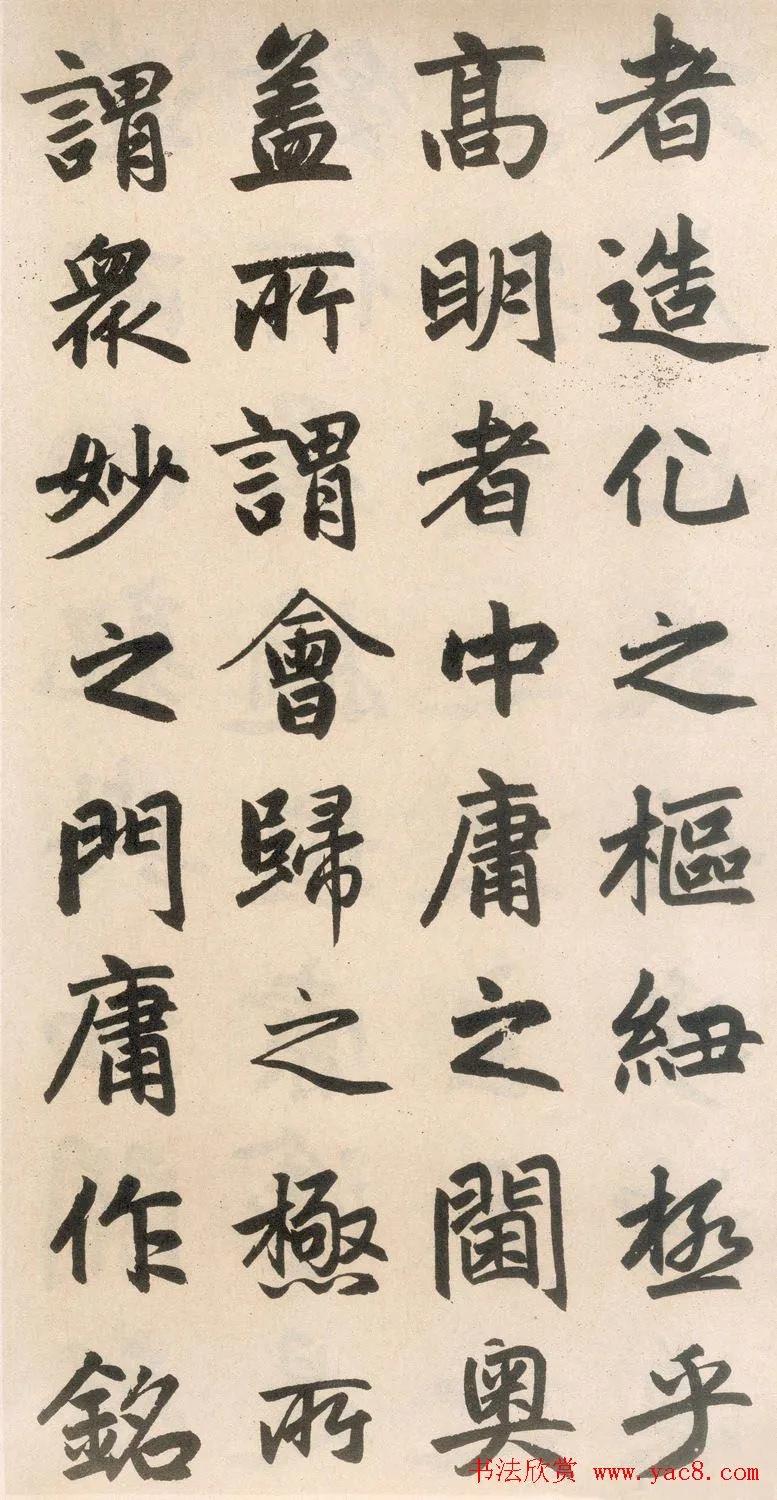 者造化之樞紐極乎
高明者中庸之閫奧
盖所謂會歸之極所
謂衆妙之門庸作銘
书法欣赏 www.yac8.com